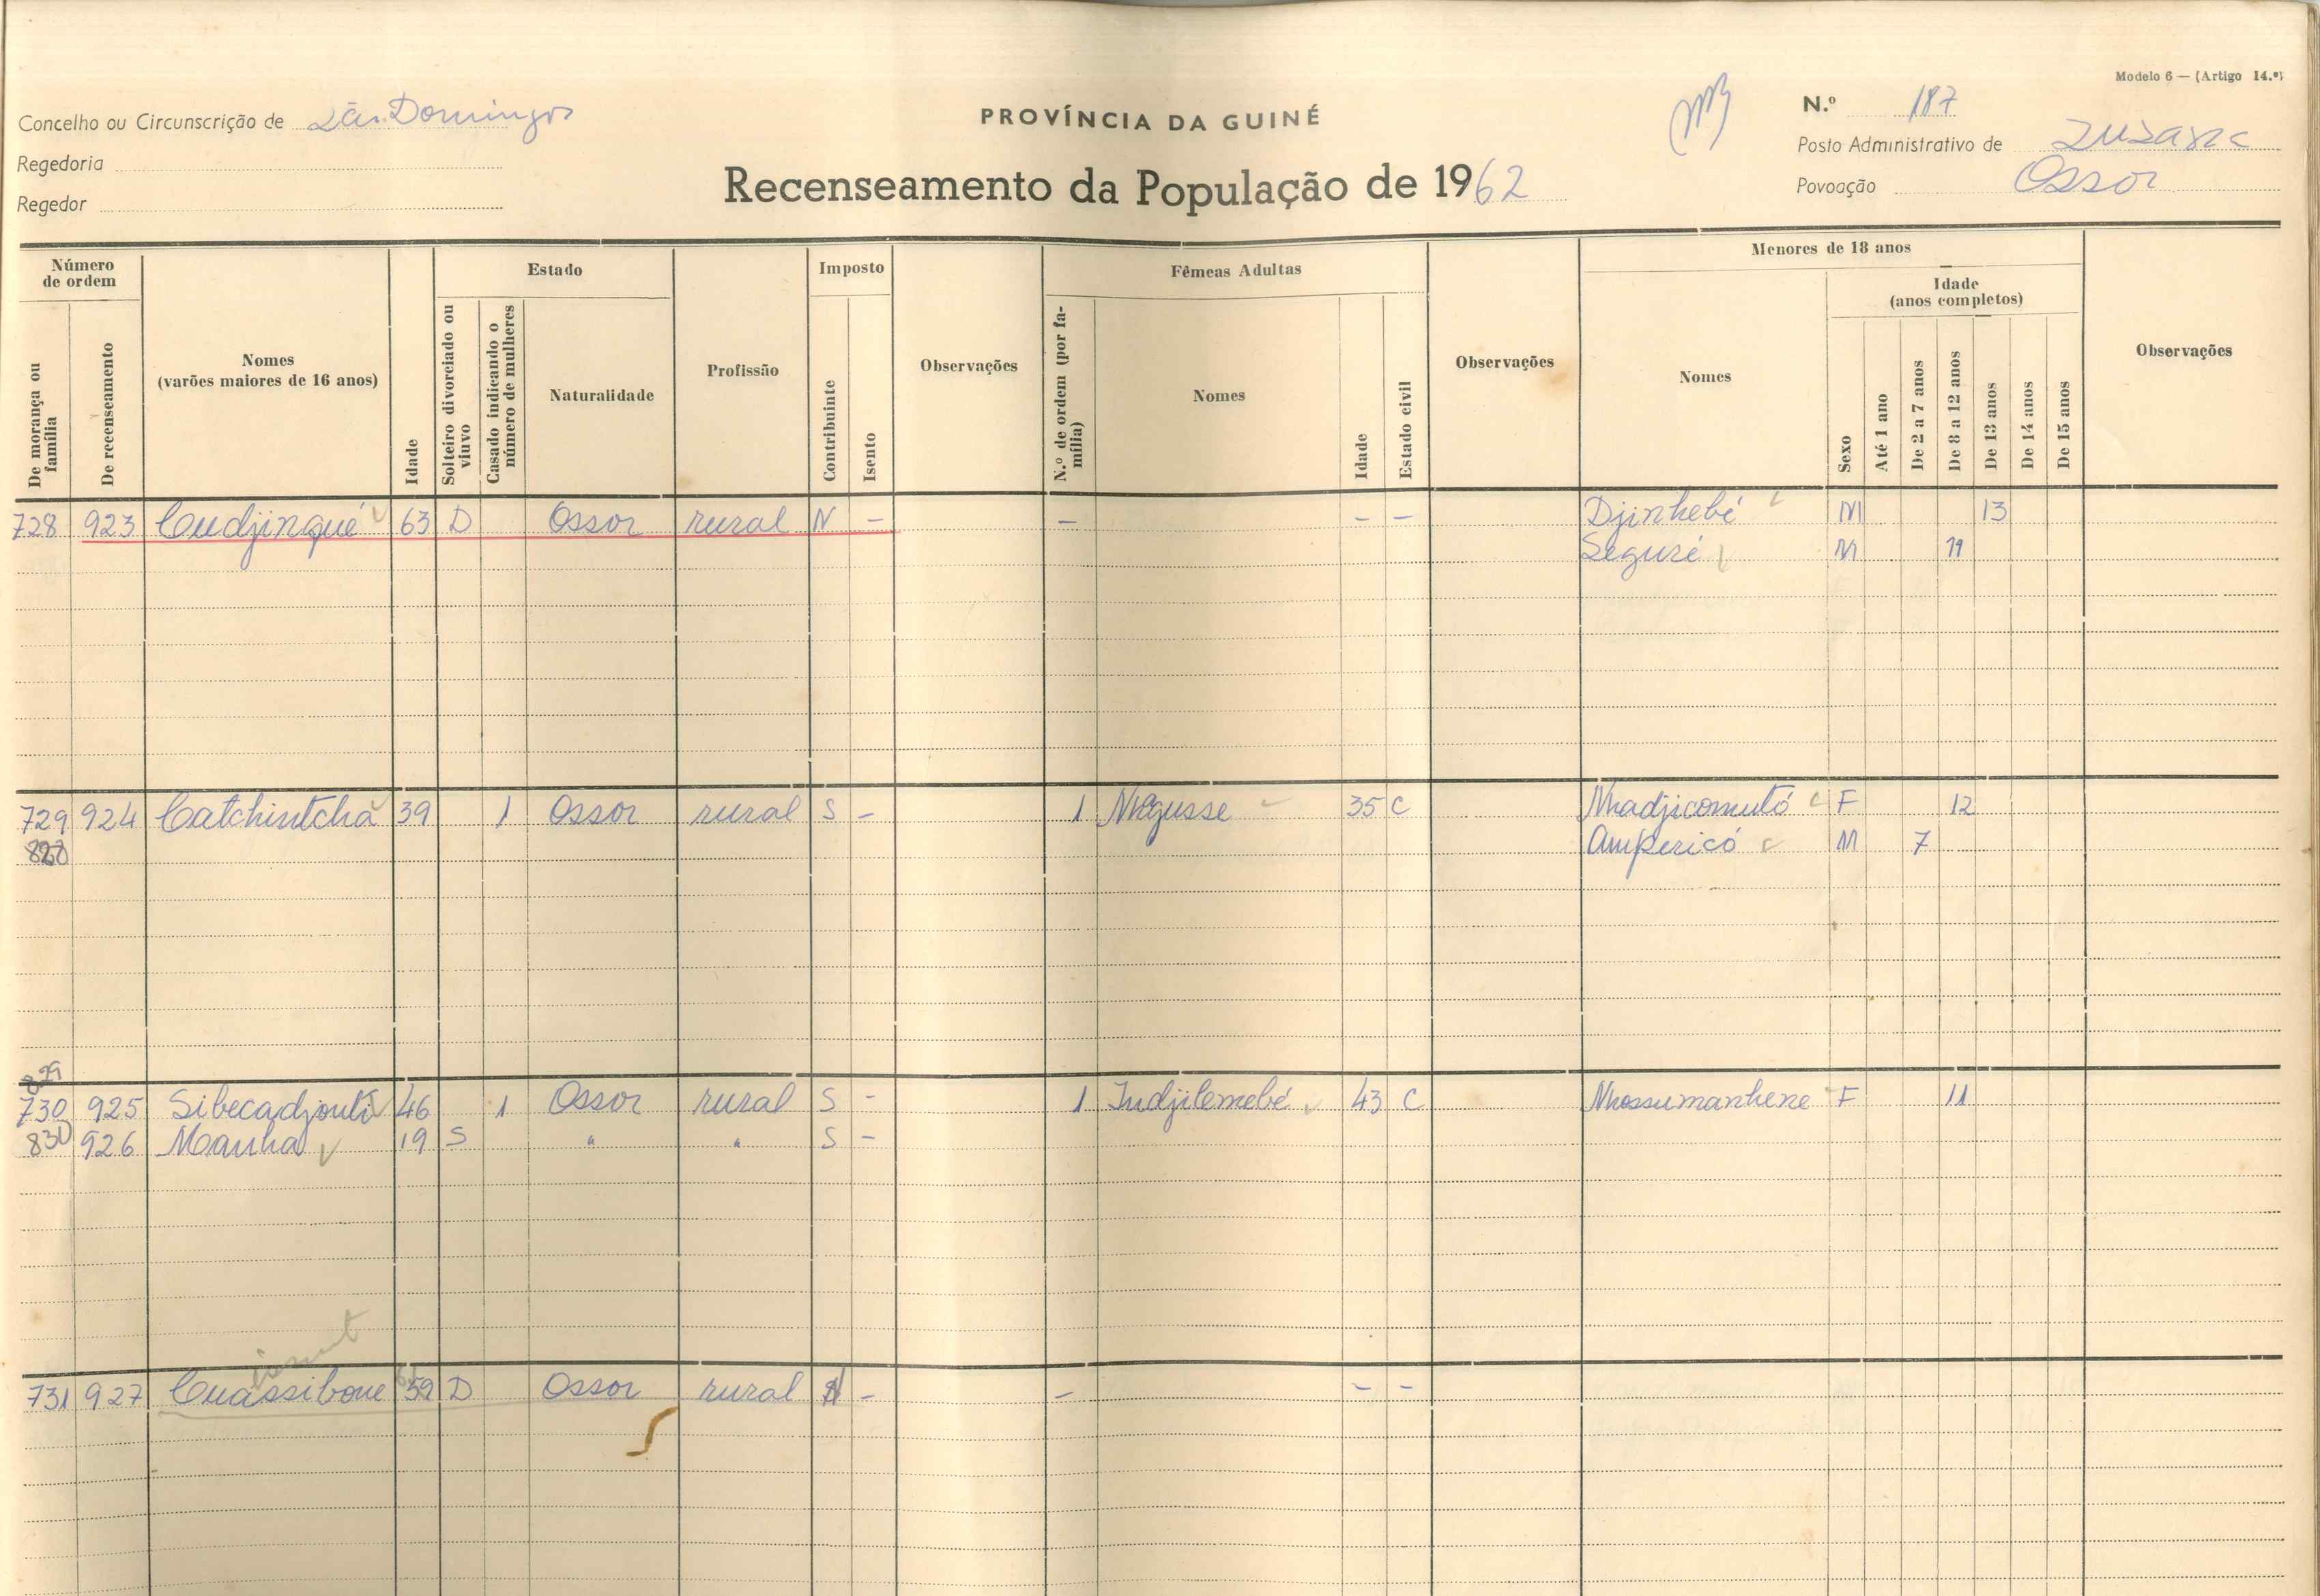 Modelo 6 — (Artigo 14.º)
Concelho ou Circunscrição de São Domingos
PROVÍNCIA DA GUINÉ
N.º 187
Regedoria
Posto Administrativo de Suzana
Regedor
Recenseamento da População de 1962
Povoação Ossor
Número de ordem
De morança ou família
De recenseamento
Nomes (varões maiores de 16 anos)
Idade
Estado
Solteiro divorciado ou viuvo
Casado indicando o número de mulheres
Naturalidade
Profissão
Imposto
Contribuinte
Isento
Observações
Fêmeas Adultas
N.º de ordem (por família)
Nomes
Idade
Estado civil
Observações
Menores de 18 anos
Nomes
Sexo
Idade (anos completos)
Até 1 ano
De 2 a 7 anos
De 8 a 12 anos
De 13 anos
De 14 anos
De 15 anos
Observações
728 923 Cudjinqué 63 D Ossor rural N - - - - Djinhebé M 13
Seguré M 11
729 924 Catchintchá 39 1 Ossor rural S - 1 Nhgusse 35 C Nhadjicomutó F 12
828 Ampericó M 7
829
730 925 Sibecadjouti 46 1 Ossor rural S - 1 Indjilemebé 43 C Nhossumanhene F 11
830 926 Manha 19 S " " S -
731 927 Cuassiboue 59 D Ossor rural N - - - -